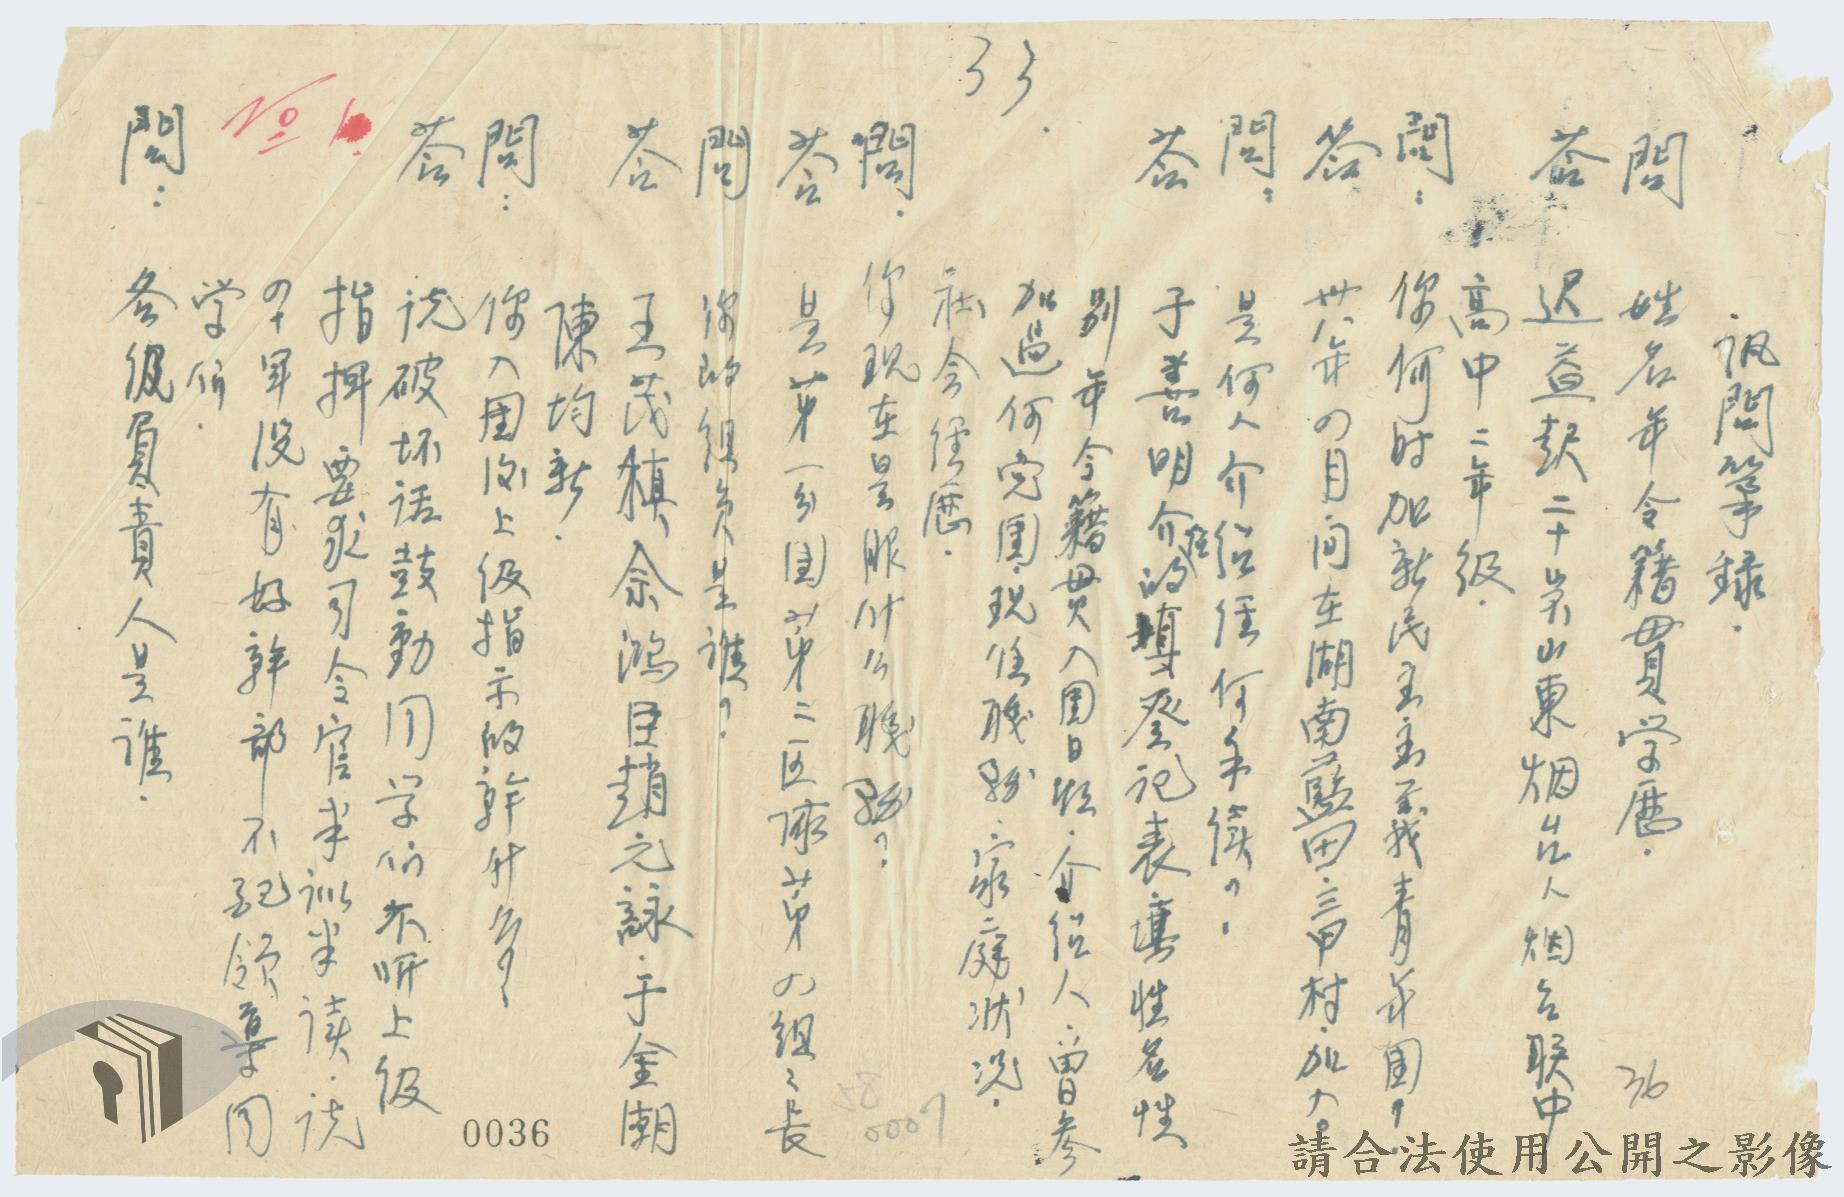 33
訊問笔録.
問 姓名年令籍貫学歷.
答 遲益起二十岁山東烟台人烟台联中
高中二年级.
問: 你何时加新民主主义青年团?
答 卅八年四月间在湖南藍田.三甲村.加入。
問: 是何人介绍経何手續?.
答 于善明介绍的填登记表填姓名性
别年令籍贯入团日期.介绍人.曾参
加過何党团.现任职务.家庭状况.
社会经歷.
問. 你现在是服什么職務?
答 是第一分团第三区隊第四组组長
問 你的组员是谁?
答 王茂稹.余鴻目趙元詠.于金潮
陳均新.
問: 你入团后上级指示的幹什么?
答 说破坏话鼓動同学们不听上级
指挥要求司令官半训半读.说
四十军没有好幹部不配领導同
学们.
問: 各级負責人是谁.
No 1
36
58
0007
0036
請合法使用公開之影像